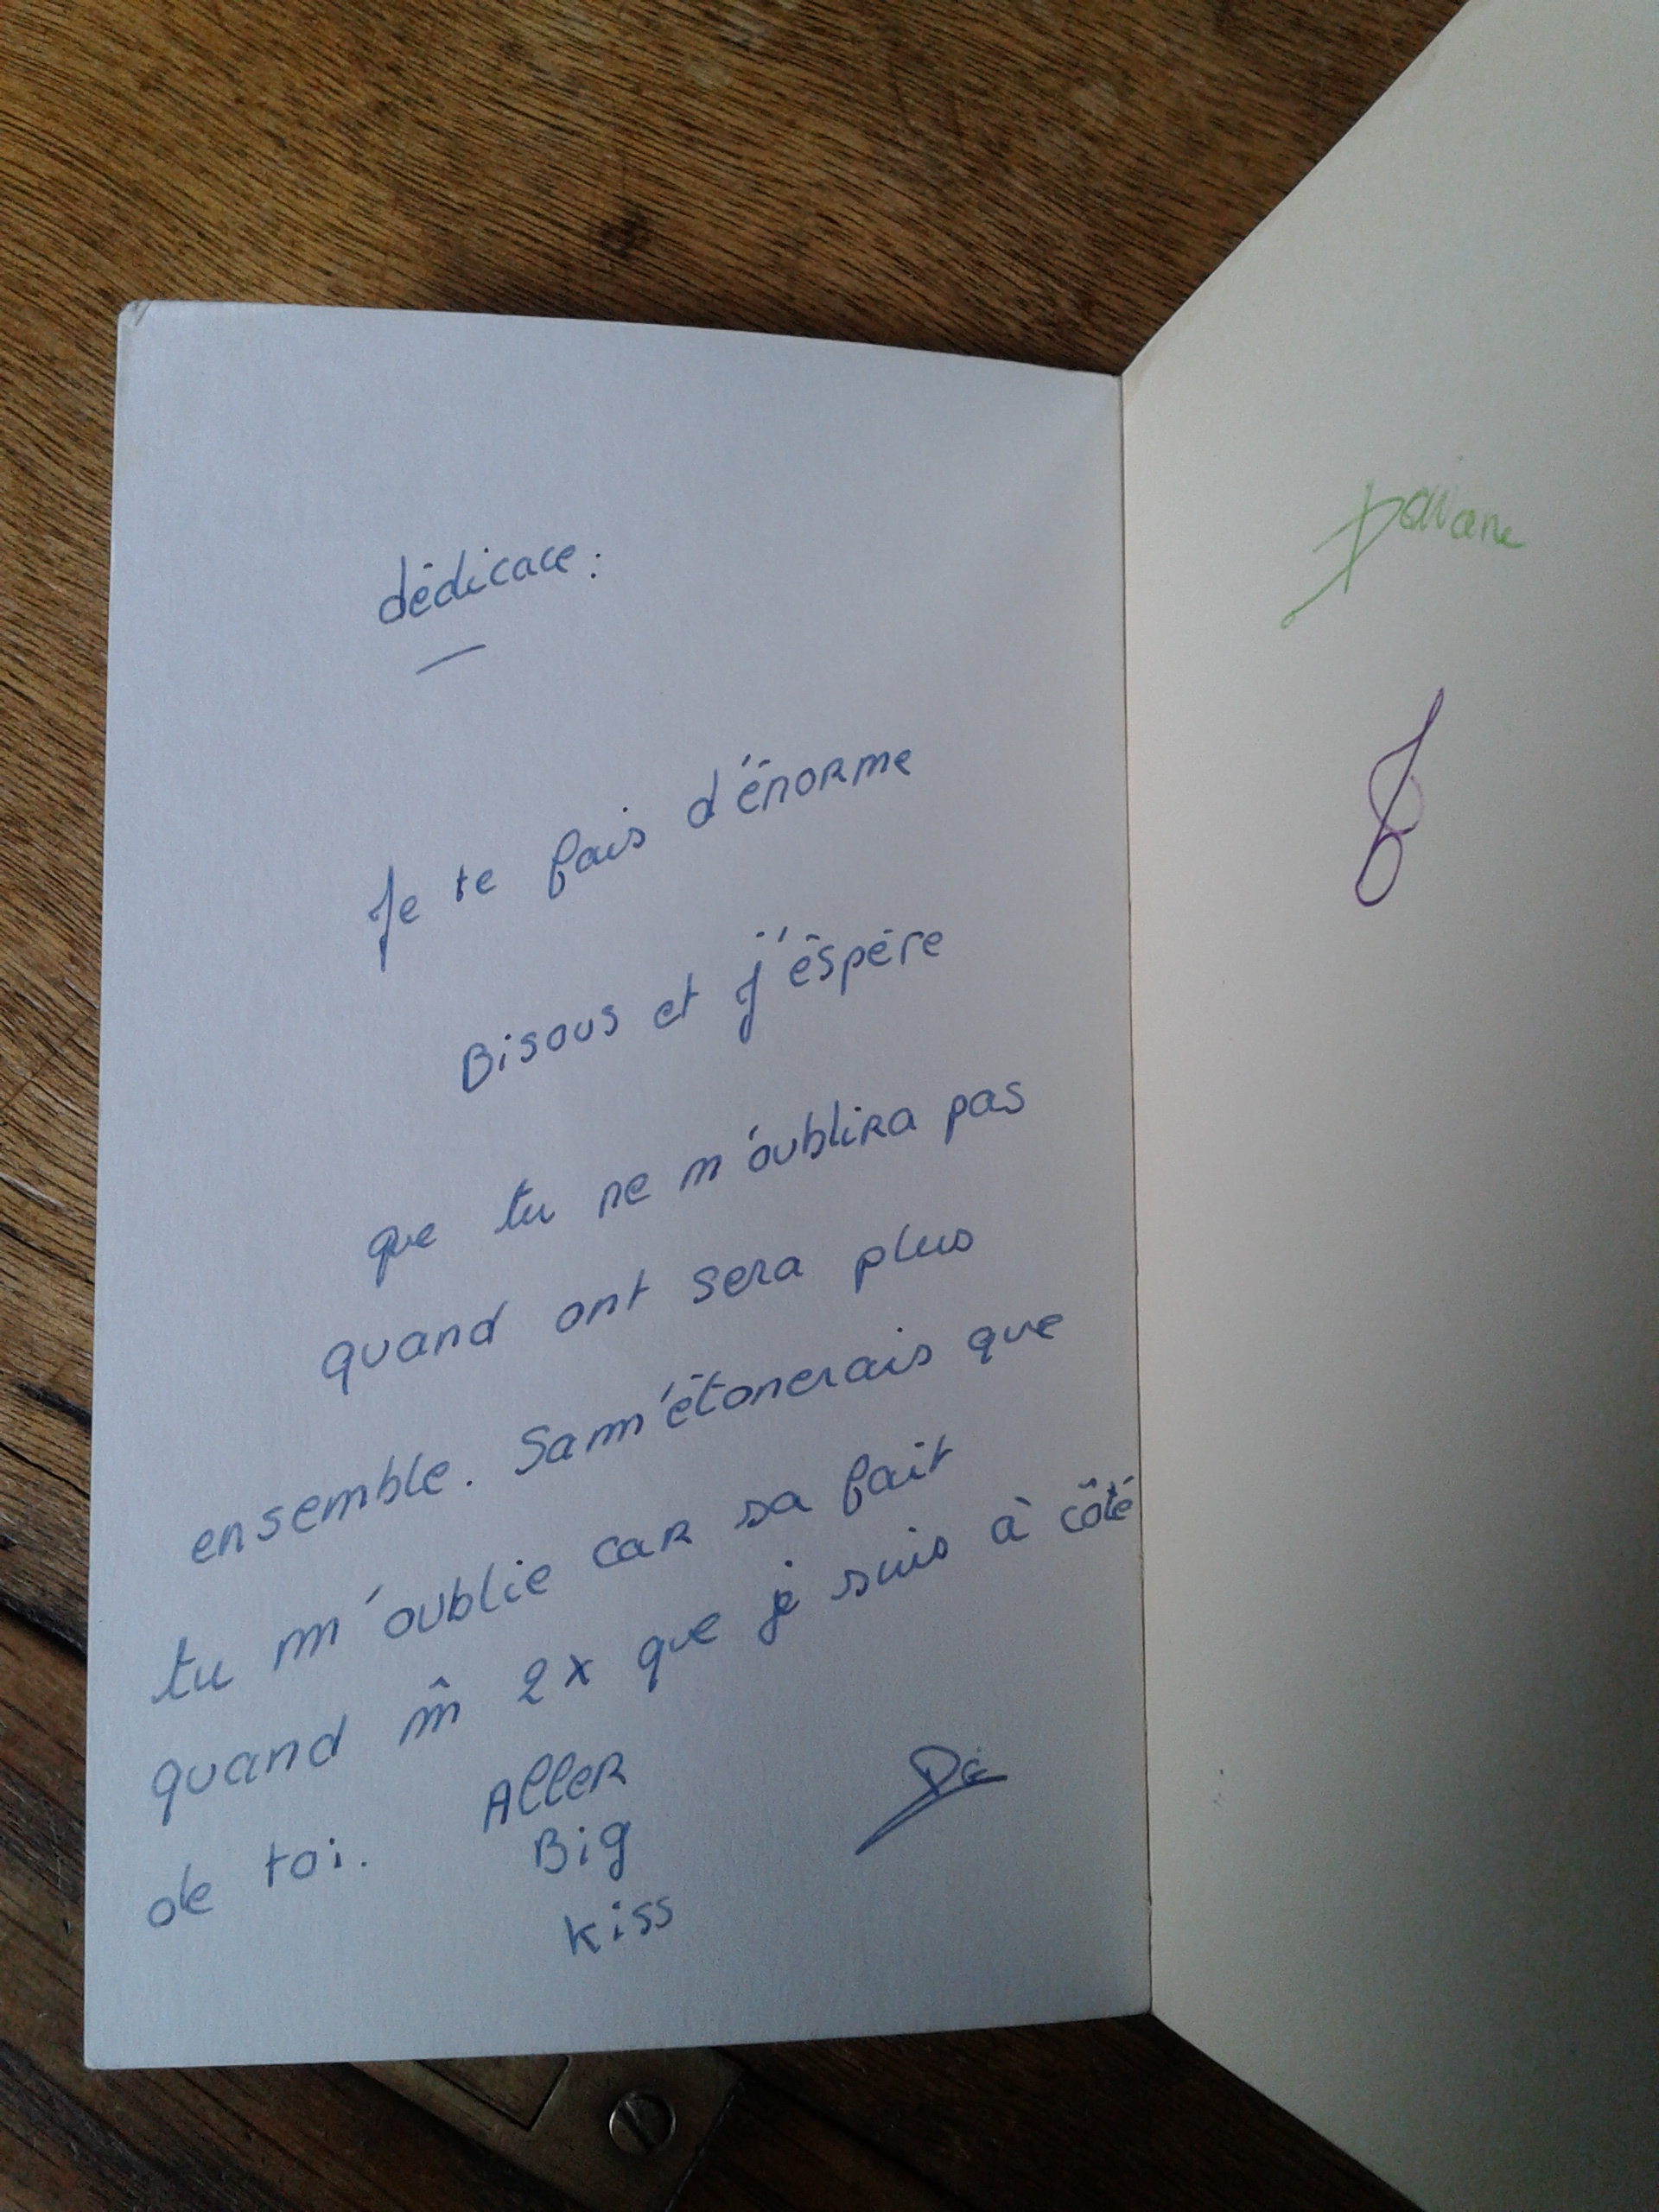 dédicace :
Je te fais d'énorme
Bisous et j'éspère
que tu ne m'oublira pas
quand ont sera plus
ensemble. Sa m'étonerais que
tu m'oublie car sa fait
quand m̂ 2x que je suis à côté
de toi.
Aller
Big
kiss